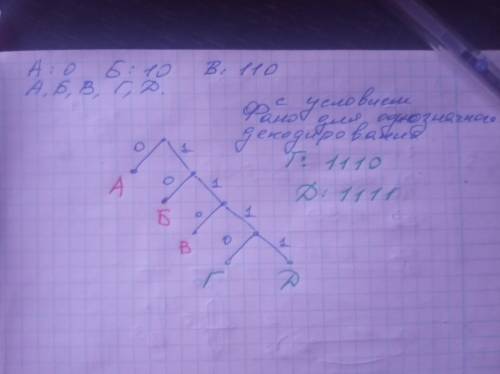 А: 0 Б: 10 В: 110
А, Б, В, Г, Д.
с условием
Фано для однозначного
декодирования
Г: 1110
Д: 1111
0 1
А
0 1
Б
0 1
В
0 1
Г Д